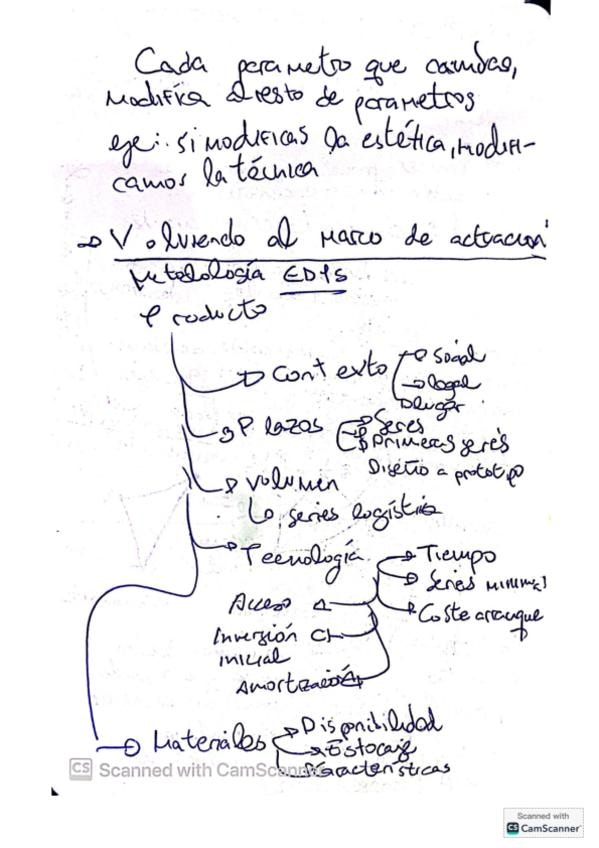 Cada parametro que cambias,
modifica al resto de parametros
eje: si modificas la estética, modifi-
camos la técnica
→ Volviendo al marco de actuación
Metología EDIS
Producto
→ Contexto → Social
→ legal
→ lugar
→ Plazos → Series
→ Primeras series
Diseño a prototipo
→ Volumen
↳ series logística
→ Tecnología → Tiempo
→ Series minimas
Acceso → Coste arranque
Inversión
inicial
Amortización
→ Materiales → Disponibilidad
→ Estocaje
→ Características
CS Scanned with CamScanner
Scanned with
CS CamScanner